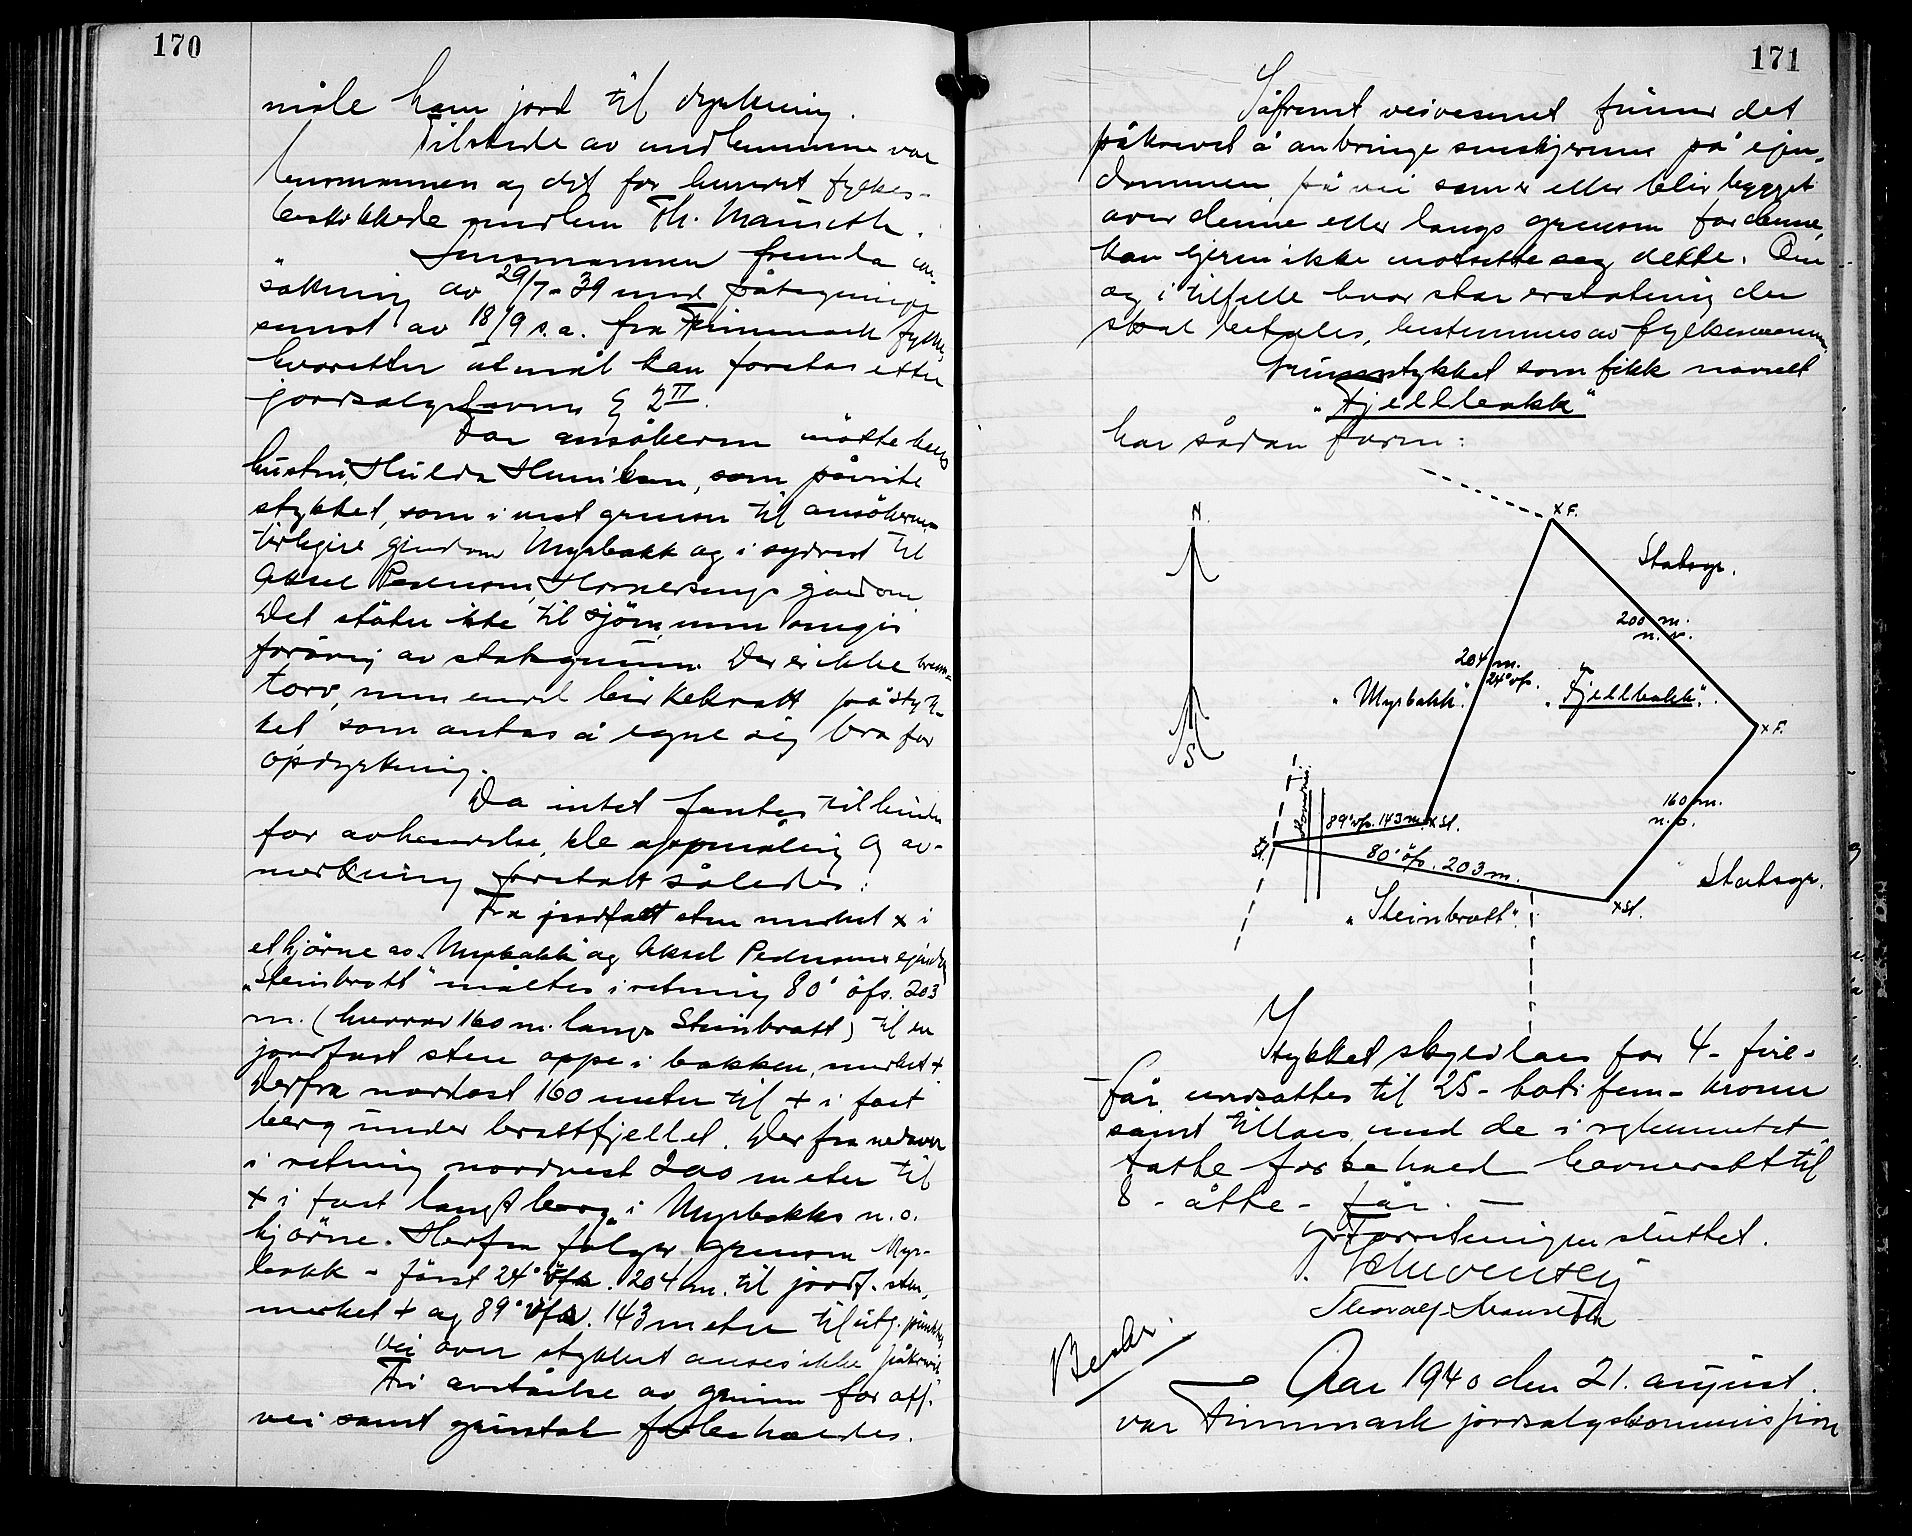 170
måle ham jord til dyrkning.
Tilstede av medlemmene var
lensmannen og det for herredet fylkes-
beskikkede medlem Th. Mauseth.
Lensmannen fremla an
søkning av 29/7-39 med påtegninger
senest av 18/9 s.a. fra Finnmark fylke,
hvoretter utmål kan foretas etter
jordsalgslovens § 2 II.
For ansøkeren møtte hans
hustru, Hulda, som påviste
stykket, som i vest grenser til ansøkerens
tidligere eiendom Myrbakk og i sydvest til
Aksel Pedersens, eiendom
Det støter ikke til sjøen, men omgis
forøvrig av statsgrunn. Der er ikke brenn-
torv, men endel birkekratt på styk-
ket som antas å egne sig bra for
opdyrkning.
Da intet fantes til hinder
for avhendelse, ble oppmåling og av-
merkning foretatt således:
Fra jordfast sten merket x i
et hjørne av Myrbakk og Aksel Pedersens eiendom
"Steinbratt" måltes i retning 80° øfs. 203
m. (hvorav 160 m. langs Steinbratt) til en
jordfast sten oppe i bakken, merket +
Derfra nordost 160 meter til + i fast
berg under brattfjellet. Derfra nedover
i retning nordvest 200 meter til
+ i fast langt berg i Myrbakks n.o.
hjørne. Herfra følger grensen Myr-
bakk - først 24° vfs. 204 m. til jordf. sten,
merket + og 89° vfs. 143 meter til utg. punktet
Vei over stykket anses ikke påkrevet
Fri avståelse av grunn for off.
vei samt grustak forbeholdes.
171
Såfremt veivesenet finner det
påkrevet å anbringe sneskjermer på eien-
dommen på vei som er eller blir bygget
over denne eller langs grensen for denne,
kan eieren ikke motsette seg dette. Om
og i tilfelle hvor stor erstatning der
skal betales, bestemmes av fylkesmannen.
Grunnstykket som fikk navnet
"Fjellbakk"
har sådan form:
N.
x F.
Statsgr.
200 m.
n.v.
204 m.
24° vf.
"Myrbakk".
"Fjellbakk".
x F.
S
160 m.
n.o.
89° vf. 143 m.
x St.
St.
80° øfs. 203 m.
Statsgr.
x St.
"Steinbratt".
Stykket skyldlaes for 4 - fire -
får ansattes til 25 - toti fem - kroner
samt tillaes med de i reglementet
fatte forbehold havnerett til
8 - åtte - får. —
Forretningen sluttet.
Thoralf Mauseth
Besk.
Aar 1940 den 21. august.
var Finnmark jordsalgskommisjon